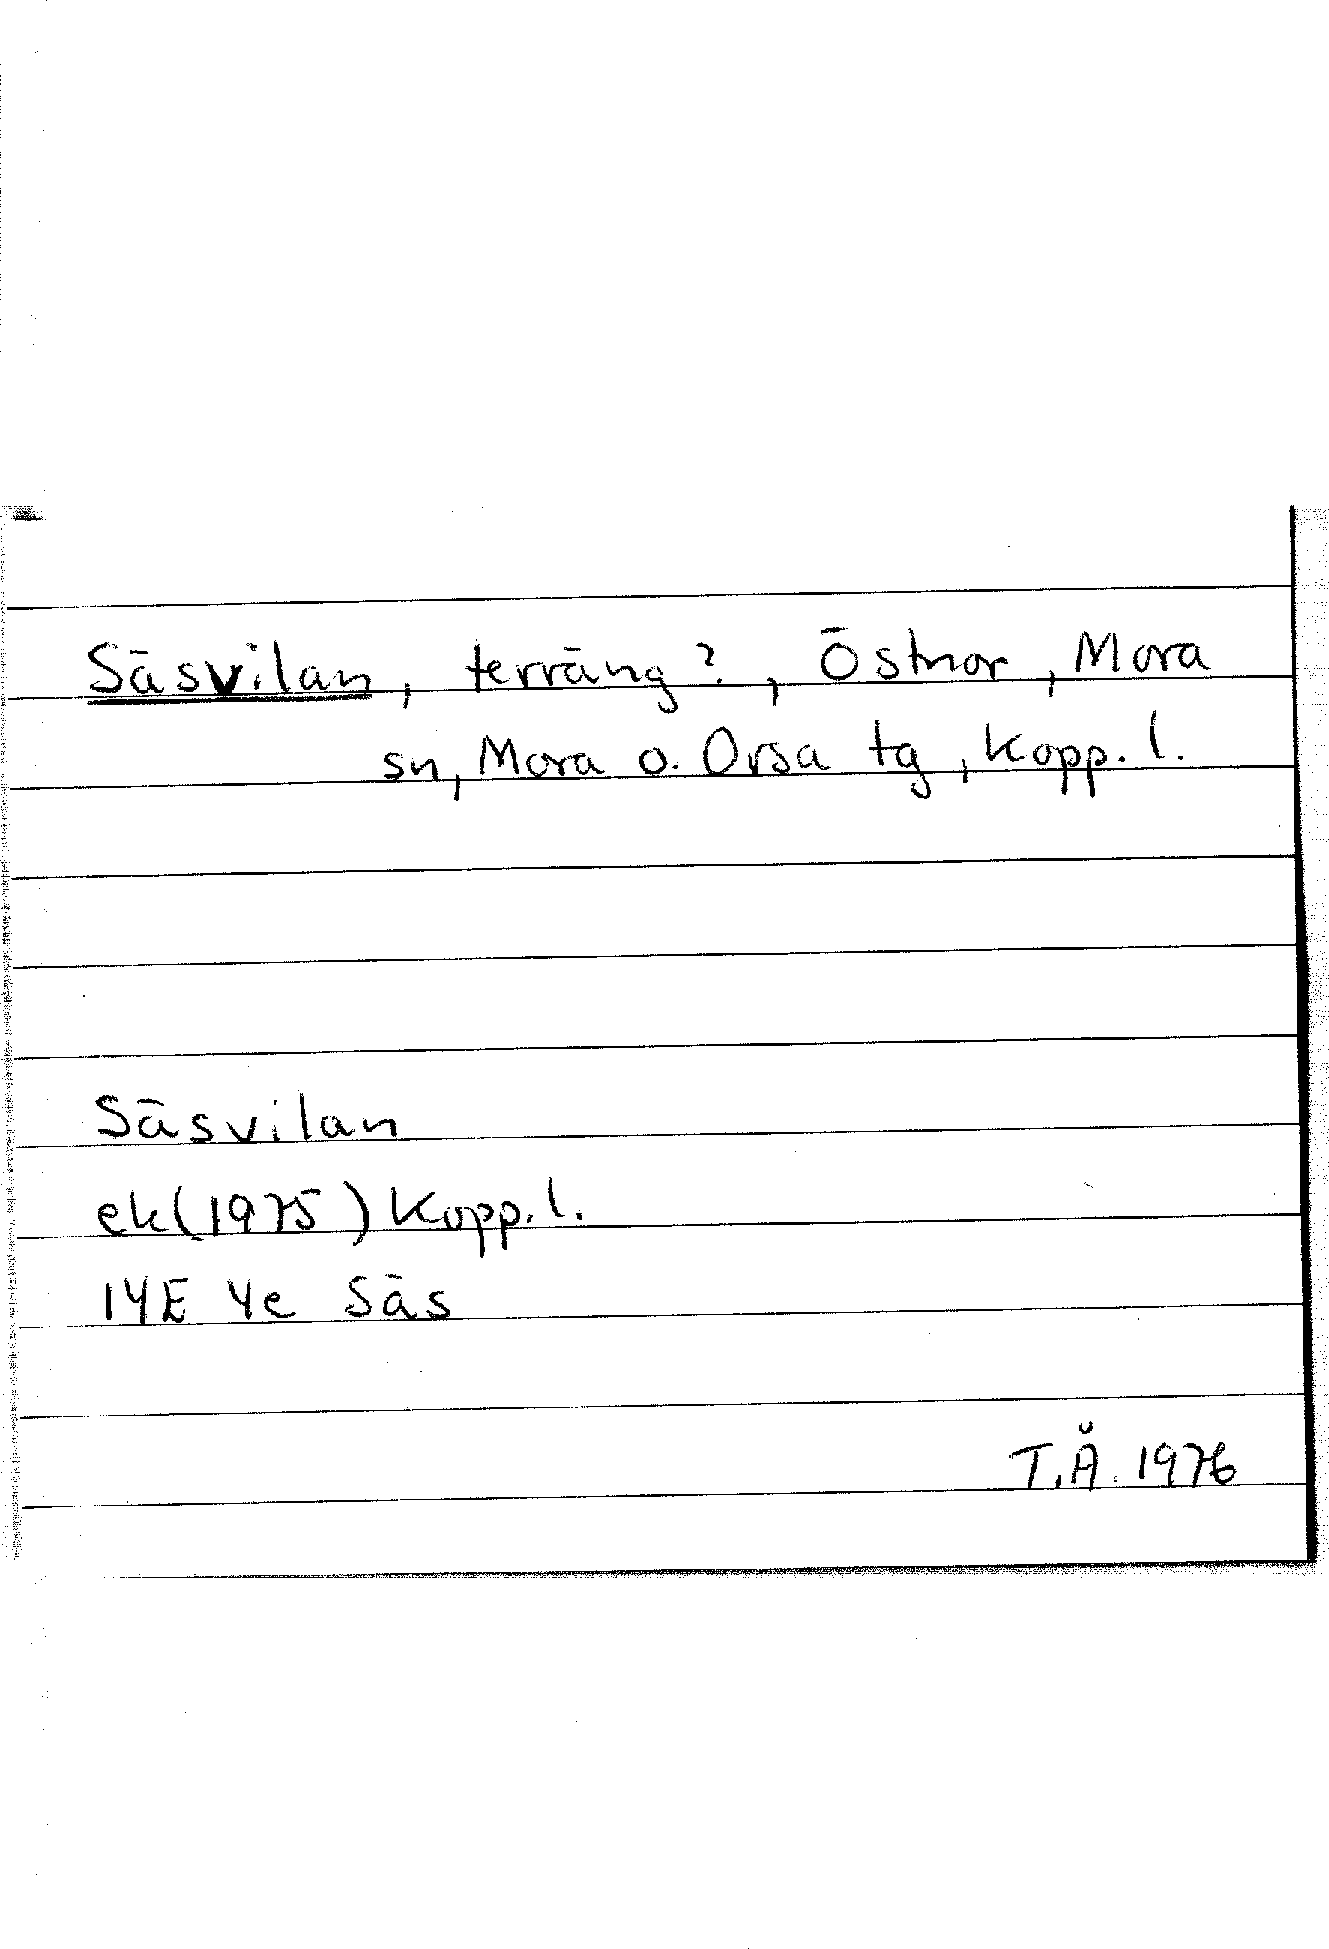 Säsvilan, terräng?, Östnor, Mora
sn, Mora o. Orsa tg, Kopp. l.
Säsvilan
ek(1975) Kopp. l.
14E 4e Säs
T.Å. 1976